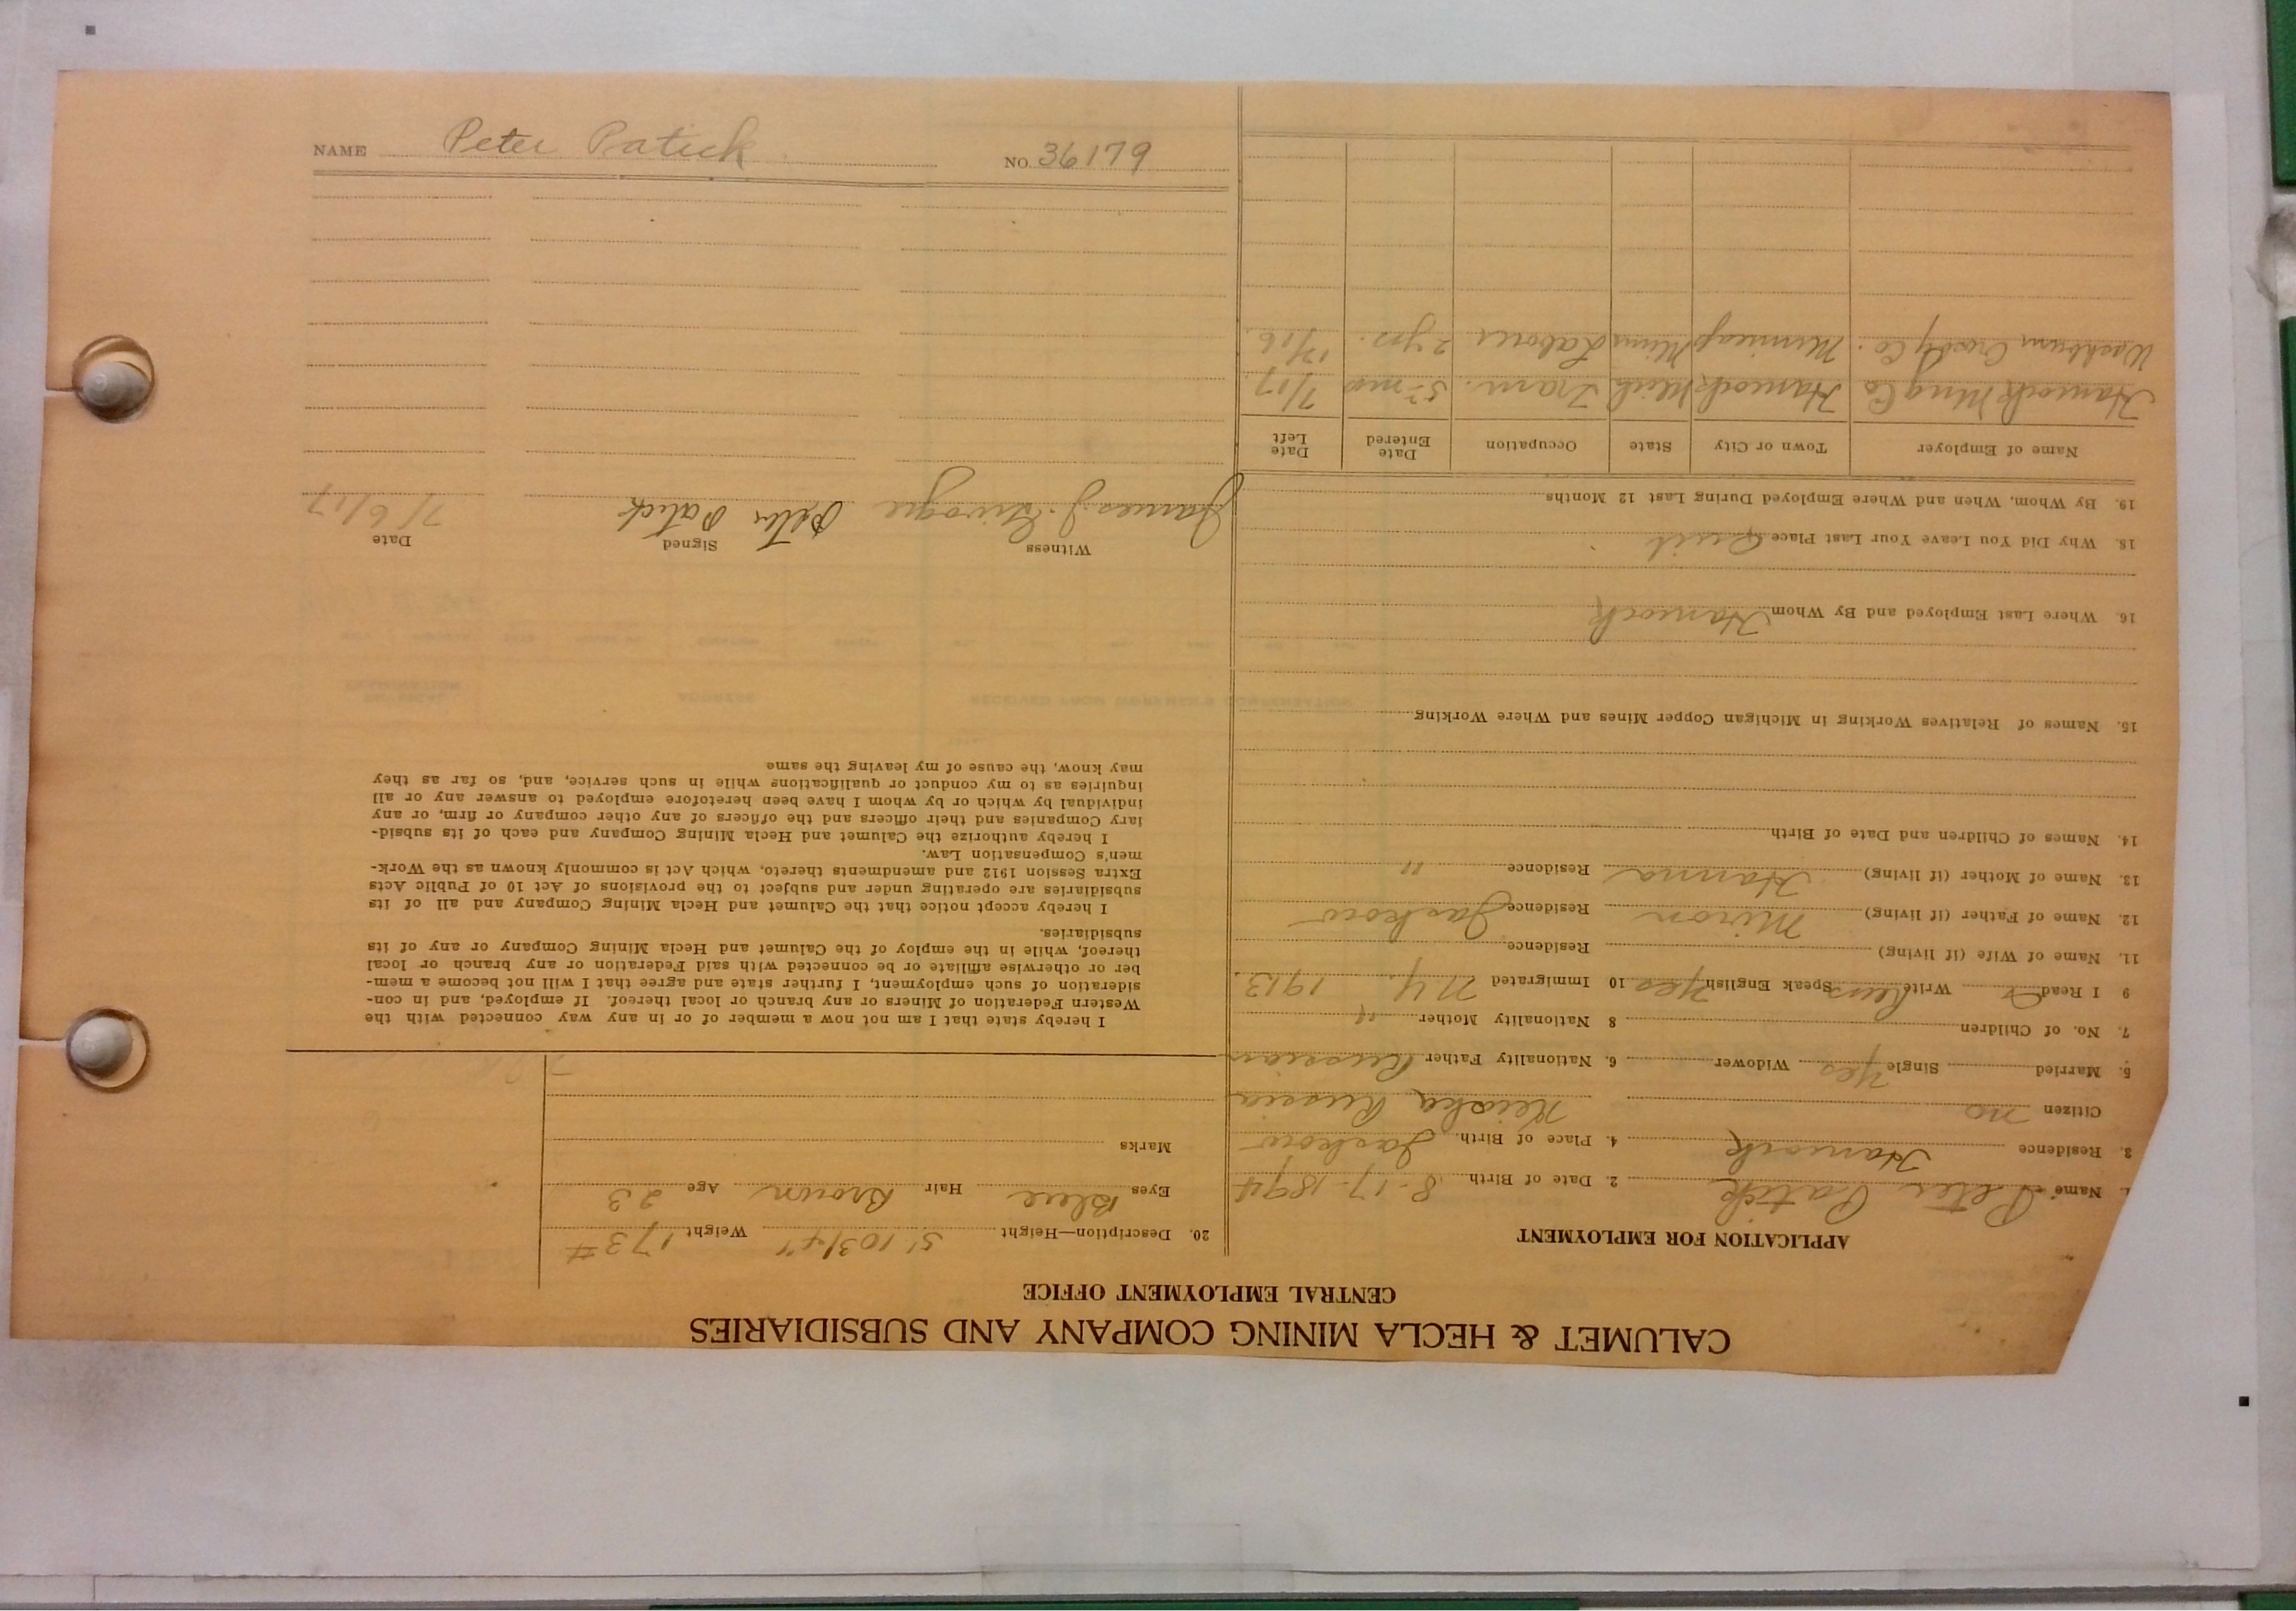 CALUMET & HECLA MINING COMPANY AND SUBSIDIARIES
CENTRAL EMPLOYMENT OFFICE
APPLICATION FOR EMPLOYMENT
1. Name Peter Patick 2. Date of Birth 8-17-1894
3. Residence Hancock 4. Place of Birth
Citizen no Russia
5. Married Single Yes Widower 6. Nationality Father Russian
7. No. of Children 8 Nationality Mother "
9 I Read Write Russ Speak English Yes 10 Immigrated N.Y. 1913
11. Name of Wife (if living) Residence
12. Name of Father (if living) Miron Residence
13. Name of Mother (if living) Hanna Residence "
14. Names of Children and Date of Birth
15. Names of Relatives Working in Michigan Copper Mines and Where Working
16. Where Last Employed and By Whom Hancock
18. Why Did You Leave Your Last Place Quit
19. By Whom, When and Where Employed During Last 12 Months
Name of Employer Town or City State Occupation Date Entered Date Left
Hancock Mng Co Hancock Mich Tram. 5 mos 7/17
Washburn Crosby Co. Minneap Minn Laborer 2 yrs. 12/16
20. Description—Height 5' 10 3/4" Weight 173 #
Eyes Blue Hair Brown Age 23
Marks
I hereby state that I am not now a member of or in any way connected with the
Western Federation of Miners or any branch or local thereof. If employed, and in con-
sideration of such employment, I further state and agree that I will not become a mem-
ber or otherwise affiliate or be connected with said Federation or any branch or local
thereof, while in the employ of the Calumet and Hecla Mining Company or any of its
subsidiaries.
I hereby accept notice that the Calumet and Hecla Mining Company and all of its
subsidiaries are operating under and subject to the provisions of Act 10 of Public Acts
Extra Session 1912 and amendments thereto, which Act is commonly known as the Work-
men's Compensation Law.
I hereby authorize the Calumet and Hecla Mining Company and each of its subsid-
iary Companies and their officers and the officers of any other company or firm, or any
individual by which or by whom I have been heretofore employed to answer any or all
inquiries as to my conduct or qualifications while in such service, and, so far as they
may know, the cause of my leaving the same
Witness Signed Date
James J. Peter Patick 7/6/17
NAME Peter Patick NO. 36179